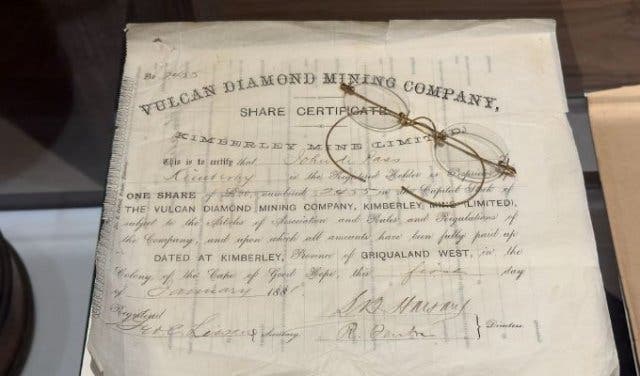 No 2455
VULCAN DIAMOND MINING COMPANY,
SHARE CERTIFICATE
KIMBERLEY MINE (LIMITED.)
This is to certify that John de Pass
Kimberley is the Registered Holder or Proprietor
ONE SHARE of numbered 2455 in the Capital Stock of
THE VULCAN DIAMOND MINING COMPANY, KIMBERLEY MINE (LIMITED),
subject to the Articles of Association and Rules and Regulations of
the Company, and upon which all amounts have been fully paid up
DATED AT KIMBERLEY, Province of GRIQUALAND WEST, in the
Colony of the Cape of Good Hope, this day
of January 188
Registered
Secretary
Directors